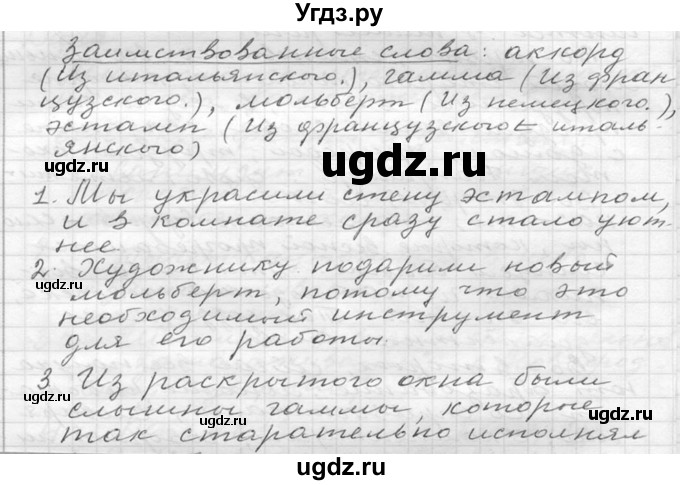 Угдз.ру
Заимствованные слова: аккорд
(Из итальянского.), гамма (Из фран-
цузского.), мольберт (Из немецкого.),
эстамп (Из французского ← италь-
янского)
ugdz.ru
1. Мы украсили стену эстампом,
и в комнате сразу стало уют-
нее.
2. Художнику подарили новый
мольберт, потому что это
необходимый инструмент
для его работы.
ugdz.ru
ugdz.ru
3 Из раскрытого окна были
слышны гаммы, которые
так старательно исполнял
ugdz.ru
ugdz.ru
ugdz.ru